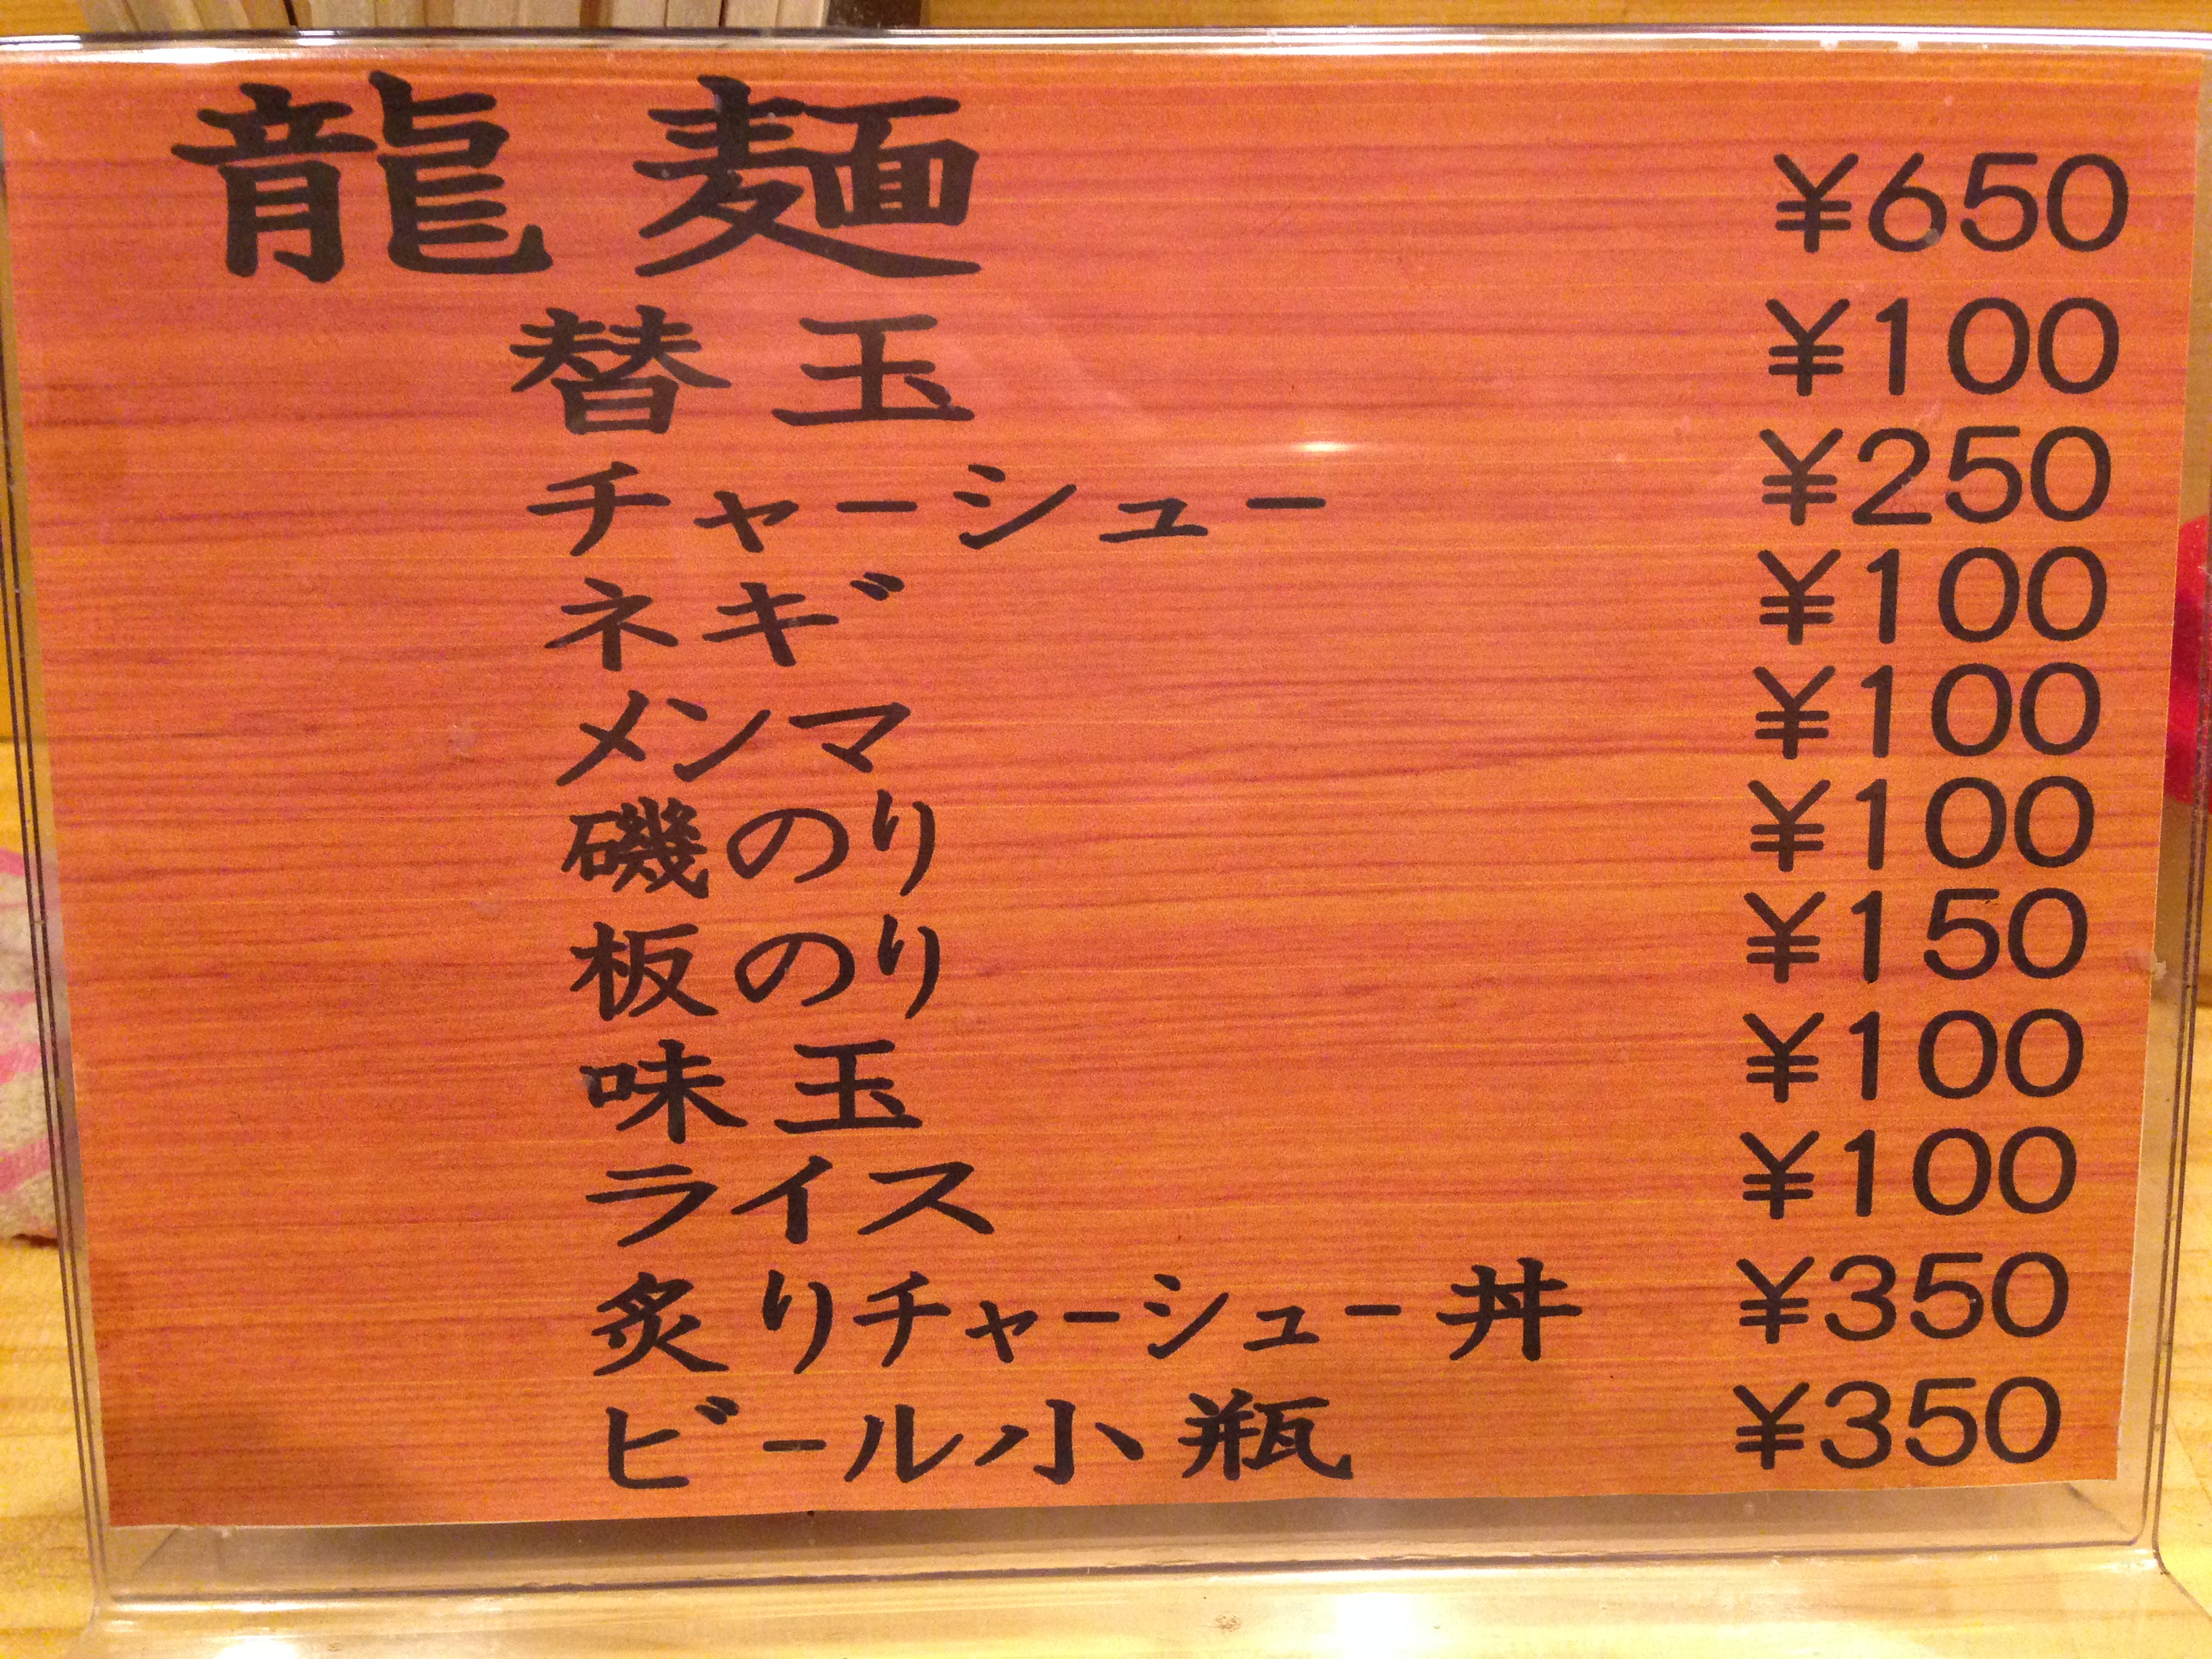 龍麺 ¥650
替玉 ¥100
チャーシュー ¥250
ネギ ¥100
メンマ ¥100
磯のり ¥100
板のり ¥150
味玉 ¥100
ライス ¥100
炙りチャーシュー丼 ¥350
ビール小瓶 ¥350